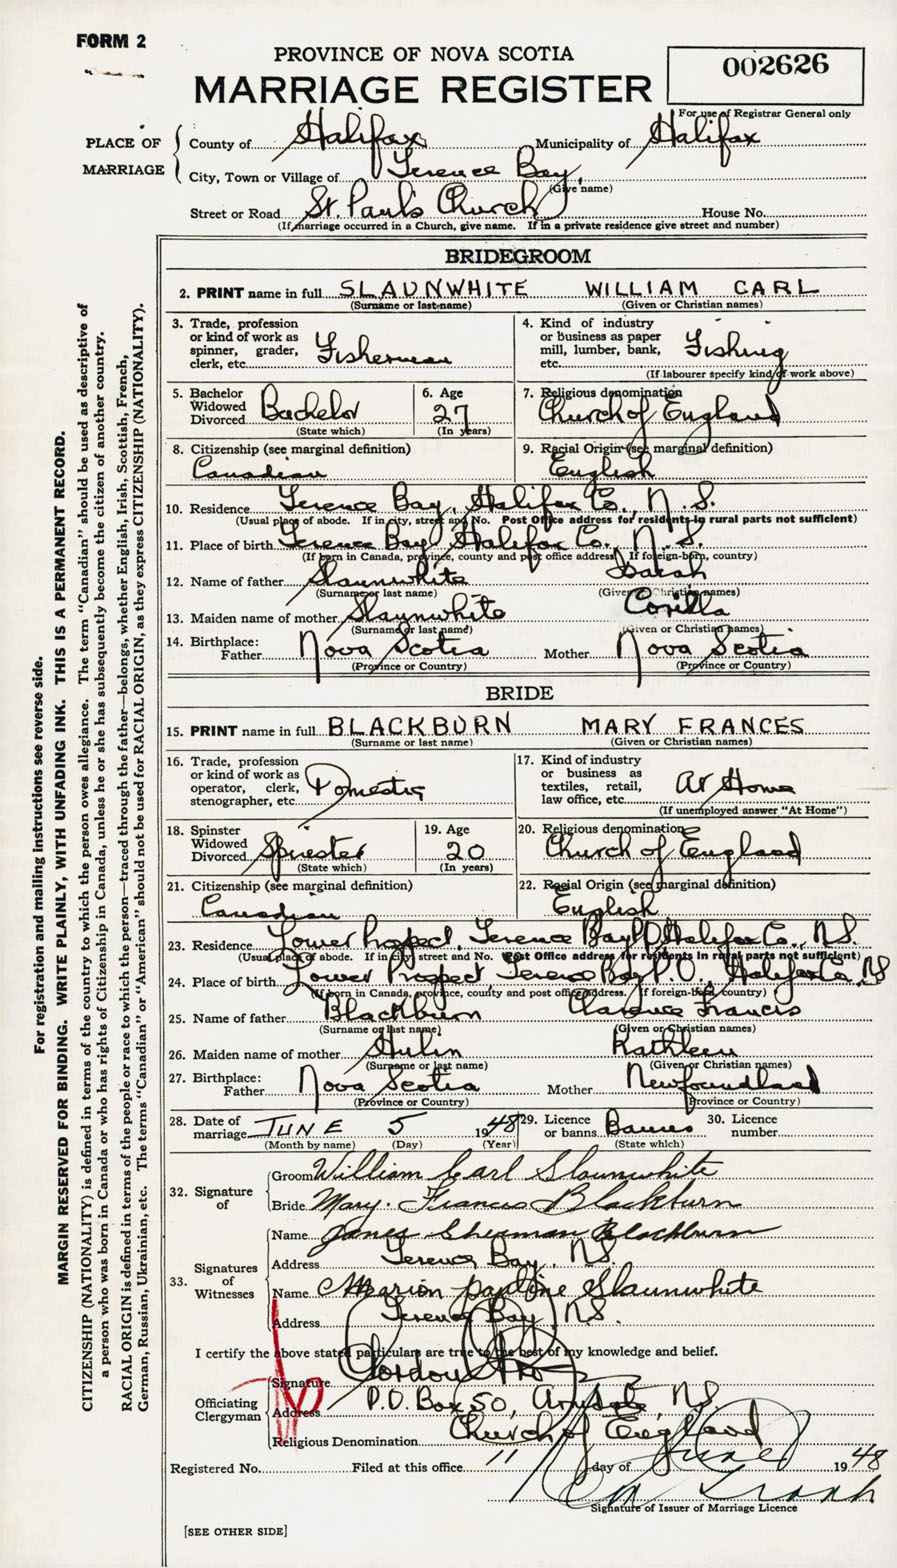 FORM 2
PROVINCE OF NOVA SCOTIA
MARRIAGE REGISTER
002626
For use of Registrar General only
PLACE OF MARRIAGE
County of Halifax Municipality of Halifax
City, Town or Village of Terence Bay,
(Give name)
Street or Road St. Paul's Church House No.
(If marriage occurred in a Church, give name. If in a private residence give street and number)
BRIDEGROOM
2. PRINT name in full SLAUNWHITE WILLIAM CARL
(Surname or last name) (Given or Christian names)
3. Trade, profession or kind of work as spinner, grader, clerk, etc. Fisherman
4. Kind of industry or business as paper mill, lumber, bank, etc. Fishing
(If labourer specify kind of work above)
5. Bachelor Widowed Divorced Bachelor
(State which)
6. Age 27
(In years)
7. Religious denomination
Church of England
8. Citizenship (see marginal definition)
Canadian
9. Racial Origin (see marginal definition)
English
10. Residence Terence Bay, Halifax Co., N.S.
(Usual place of abode. If in city, street and No. Post Office address for residents in rural parts not sufficient)
11. Place of birth Terence Bay, Halifax Co., N.S.
(If born in Canada, province, county and post office address. If foreign-born, country)
12. Name of father Slaunwhite
(Surname or last name) (Given or Christian names)
13. Maiden name of mother Slaunwhite Corilla
(Surname or last name) (Given or Christian names)
14. Birthplace:
Father Nova Scotia Mother Nova Scotia
(Province or Country) (Province or Country)
BRIDE
15. PRINT name in full BLACKBURN MARY FRANCES
(Surname or last name) (Given or Christian names)
16. Trade, profession or kind of work as operator, clerk, stenographer, etc. Domestic
17. Kind of industry or business as textiles, retail, law office, etc. At Home
(If unemployed answer "At Home")
18. Spinster Widowed Divorced Spinster
(State which)
19. Age 20
(In years)
20. Religious denomination
Church of England
21. Citizenship (see marginal definition)
Canadian
22. Racial Origin (see marginal definition)
English
23. Residence Lower Prospect, Terence Bay P.O., Halifax Co., N.S.
(Usual place of abode. If in city, street and No. Post Office address for residents in rural parts not sufficient)
24. Place of birth Lower Prospect Terence Bay P.O. Halifax Co. N.S
(If born in Canada, province, county and post office address. If foreign-born, country)
25. Name of father Blackburn Clarence Francis
(Surname or last name) (Given or Christian names)
26. Maiden name of mother Hulin Kathleen
(Surname or last name) (Given or Christian names)
27. Birthplace:
Father Nova Scotia Mother Newfoundland
(Province or Country) (Province or Country)
28. Date of marriage JUNE 5 1948
(Month by name) (Day) (Year)
29. Licence or banns Banns
(State which)
30. Licence number
32. Signature of
Groom William Carl Slaunwhite
Bride Mary Francis Blackburn
33. Signatures of Witnesses
Name James Sherman Blackburn
Address Terence Bay, N.S.
Name Marion Pauline Slaunwhite
Address Terence Bay, N.S.
I certify the above stated particulars are true to the best of my knowledge and belief.
Officiating Clergyman
Signature Gordon
Address P.O. Box 50, Armdale, N.S.
Religious Denomination Church of England
Registered No. Filed at this office 11 day of June 1948
Signature of Issuer of Marriage Licence
[SEE OTHER SIDE]
For registration and mailing instructions see reverse side.
MARGIN RESERVED FOR BINDING. WRITE PLAINLY, WITH UNFADING INK. THIS IS A PERMANENT RECORD.
CITIZENSHIP (NATIONALITY) is defined in terms of the country to which the person owes allegiance. The term "Canadian" should be used as descriptive of
a person who was born in Canada or who has rights of Citizenship in Canada, unless he or she has subsequently become the citizen of another country.
RACIAL ORIGIN is defined in terms of the people or race to which the person—traced through the father—belongs, whether English, Irish, Scottish, French,
German, Russian, Ukrainian, etc. The terms "Canadian" or "American" should not be used for RACIAL ORIGIN, as they express CITIZENSHIP (NATIONALITY).